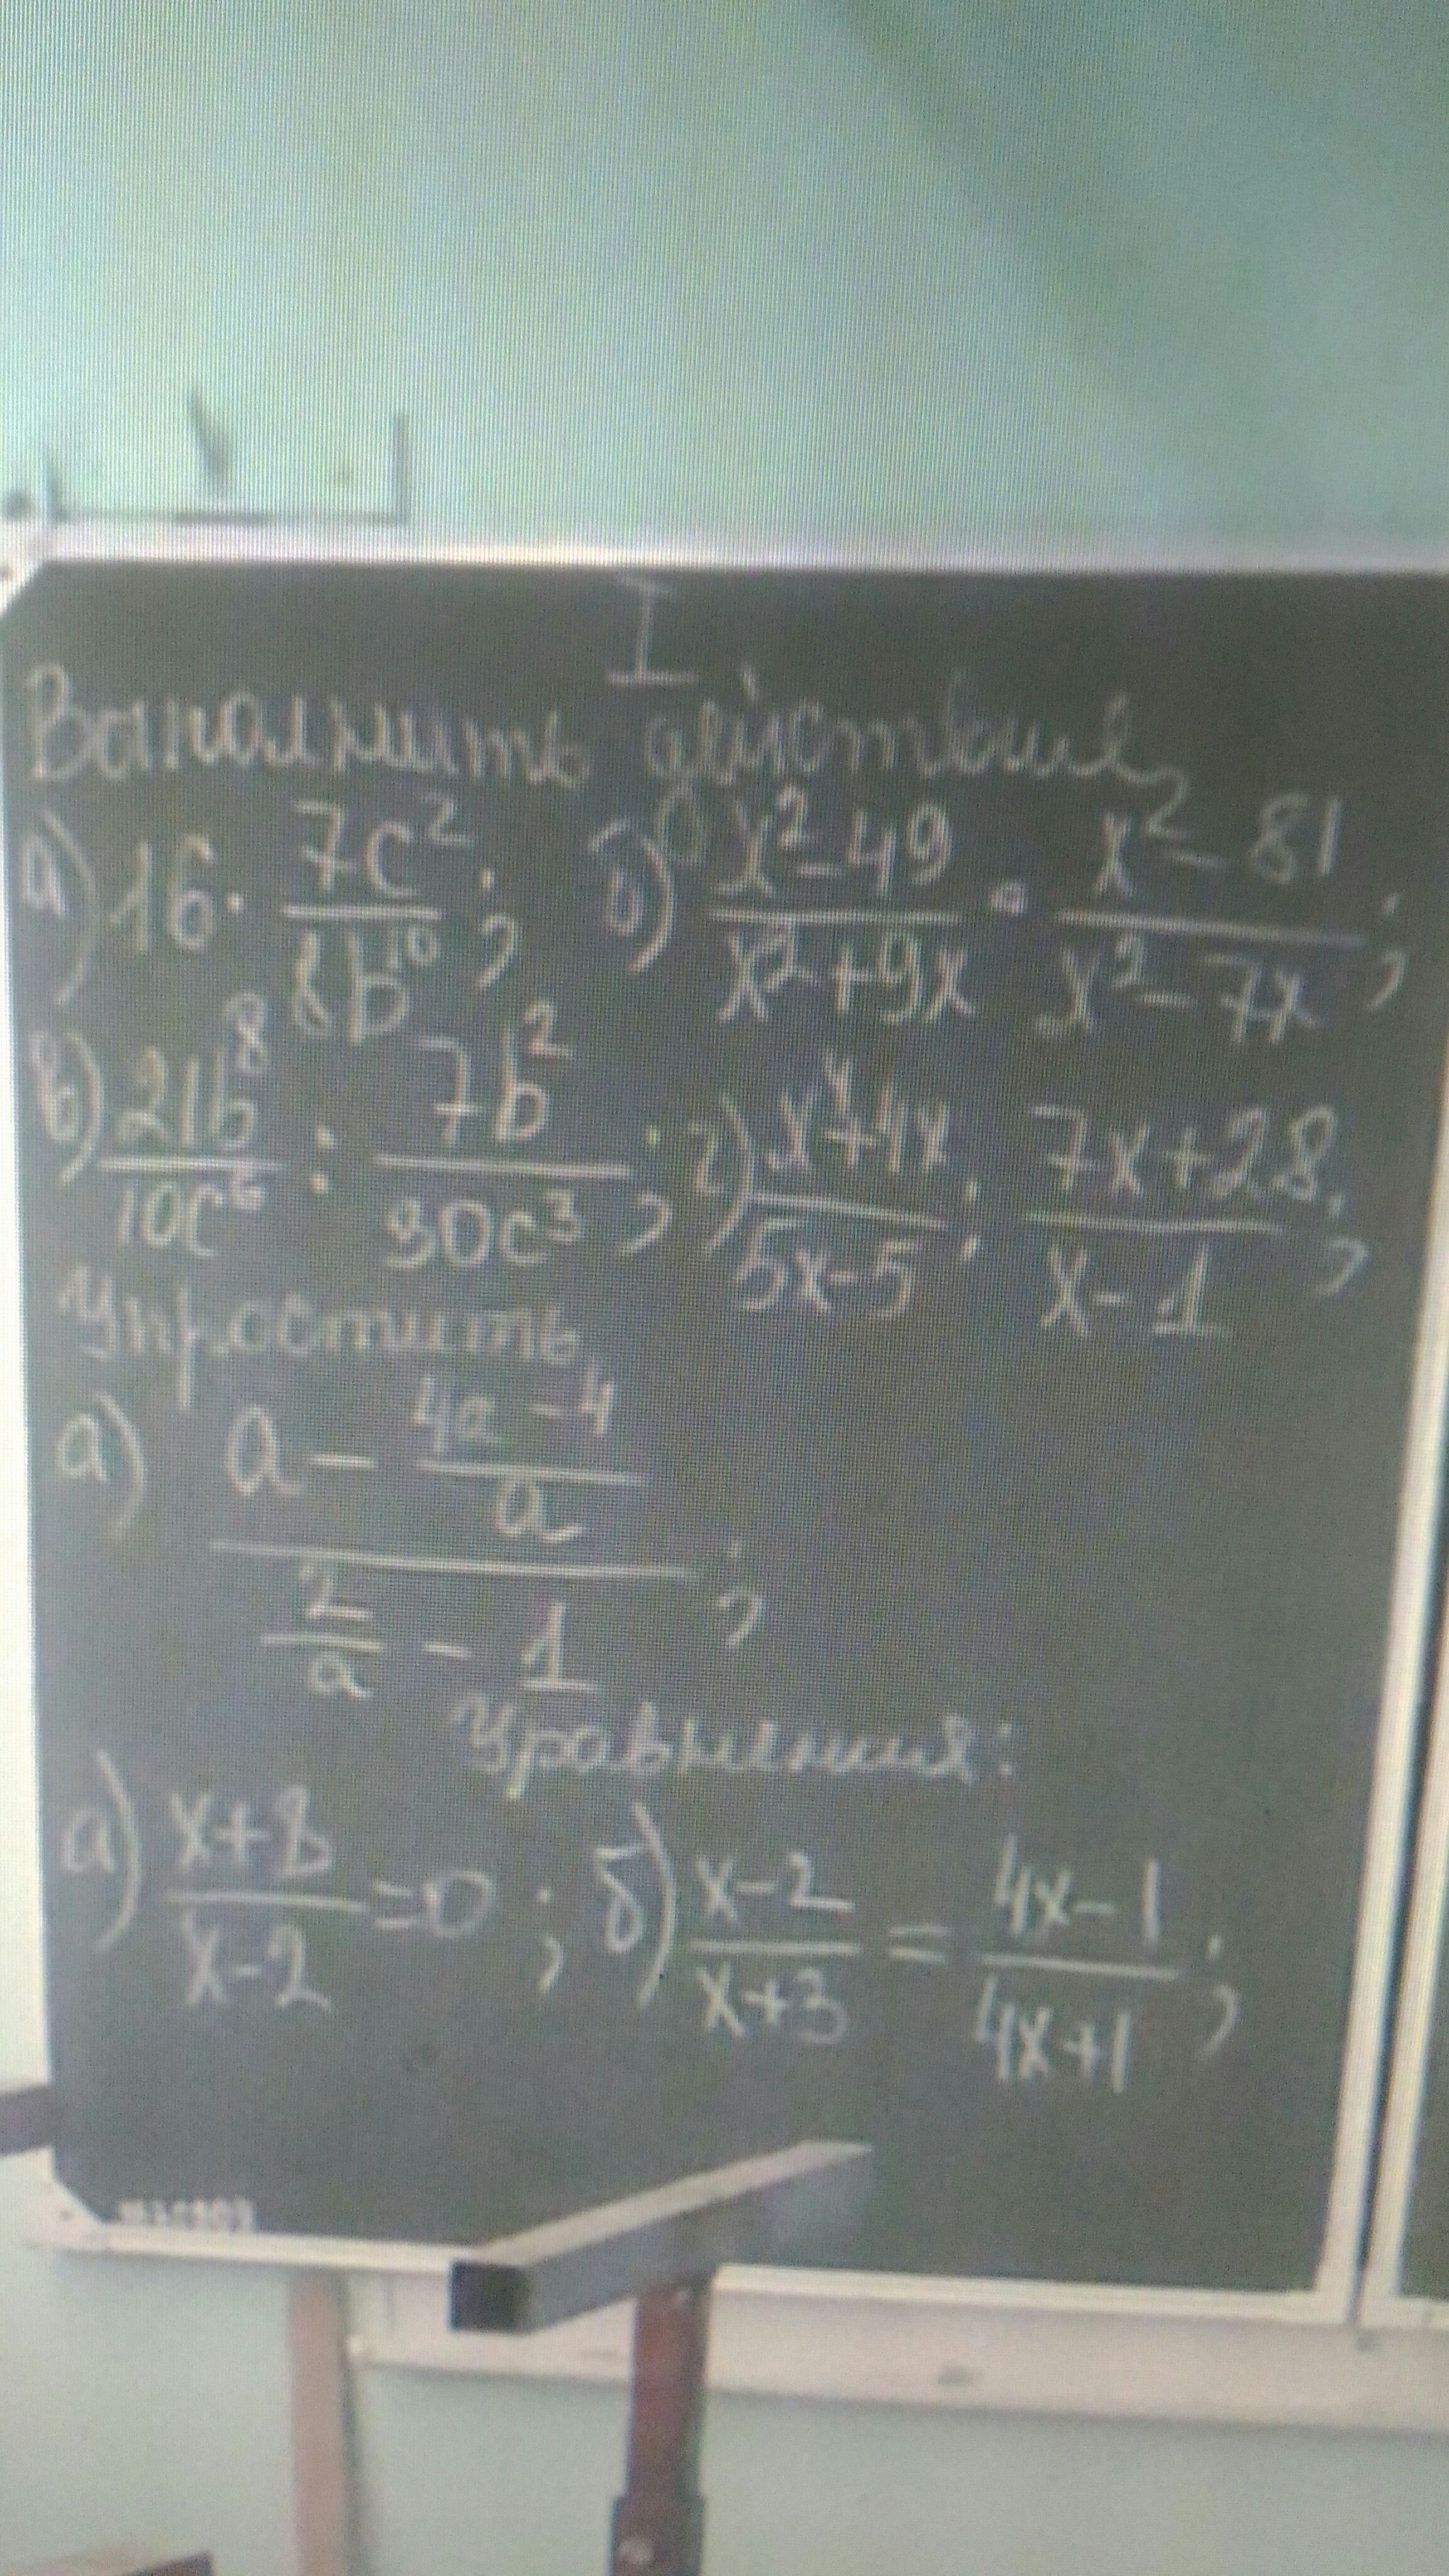 I
Выполнить действия
а) 16 · 7c²/8b¹⁰ ; б) x² - 49/x² + 9x · x² - 81/x² - 7x ;
в) 21b⁸/10c⁶ : 7b²/30c³ ; г) x² + 4x/5x - 5 : 7x + 28/x - 1 ;
Упростить
а) a - 4a - 4/a
2/a - 1 ;
Уравнения:
а) x + 8/x - 2 = 0 ; б) x - 2/x + 3 = 4x - 1/4x + 1 ;